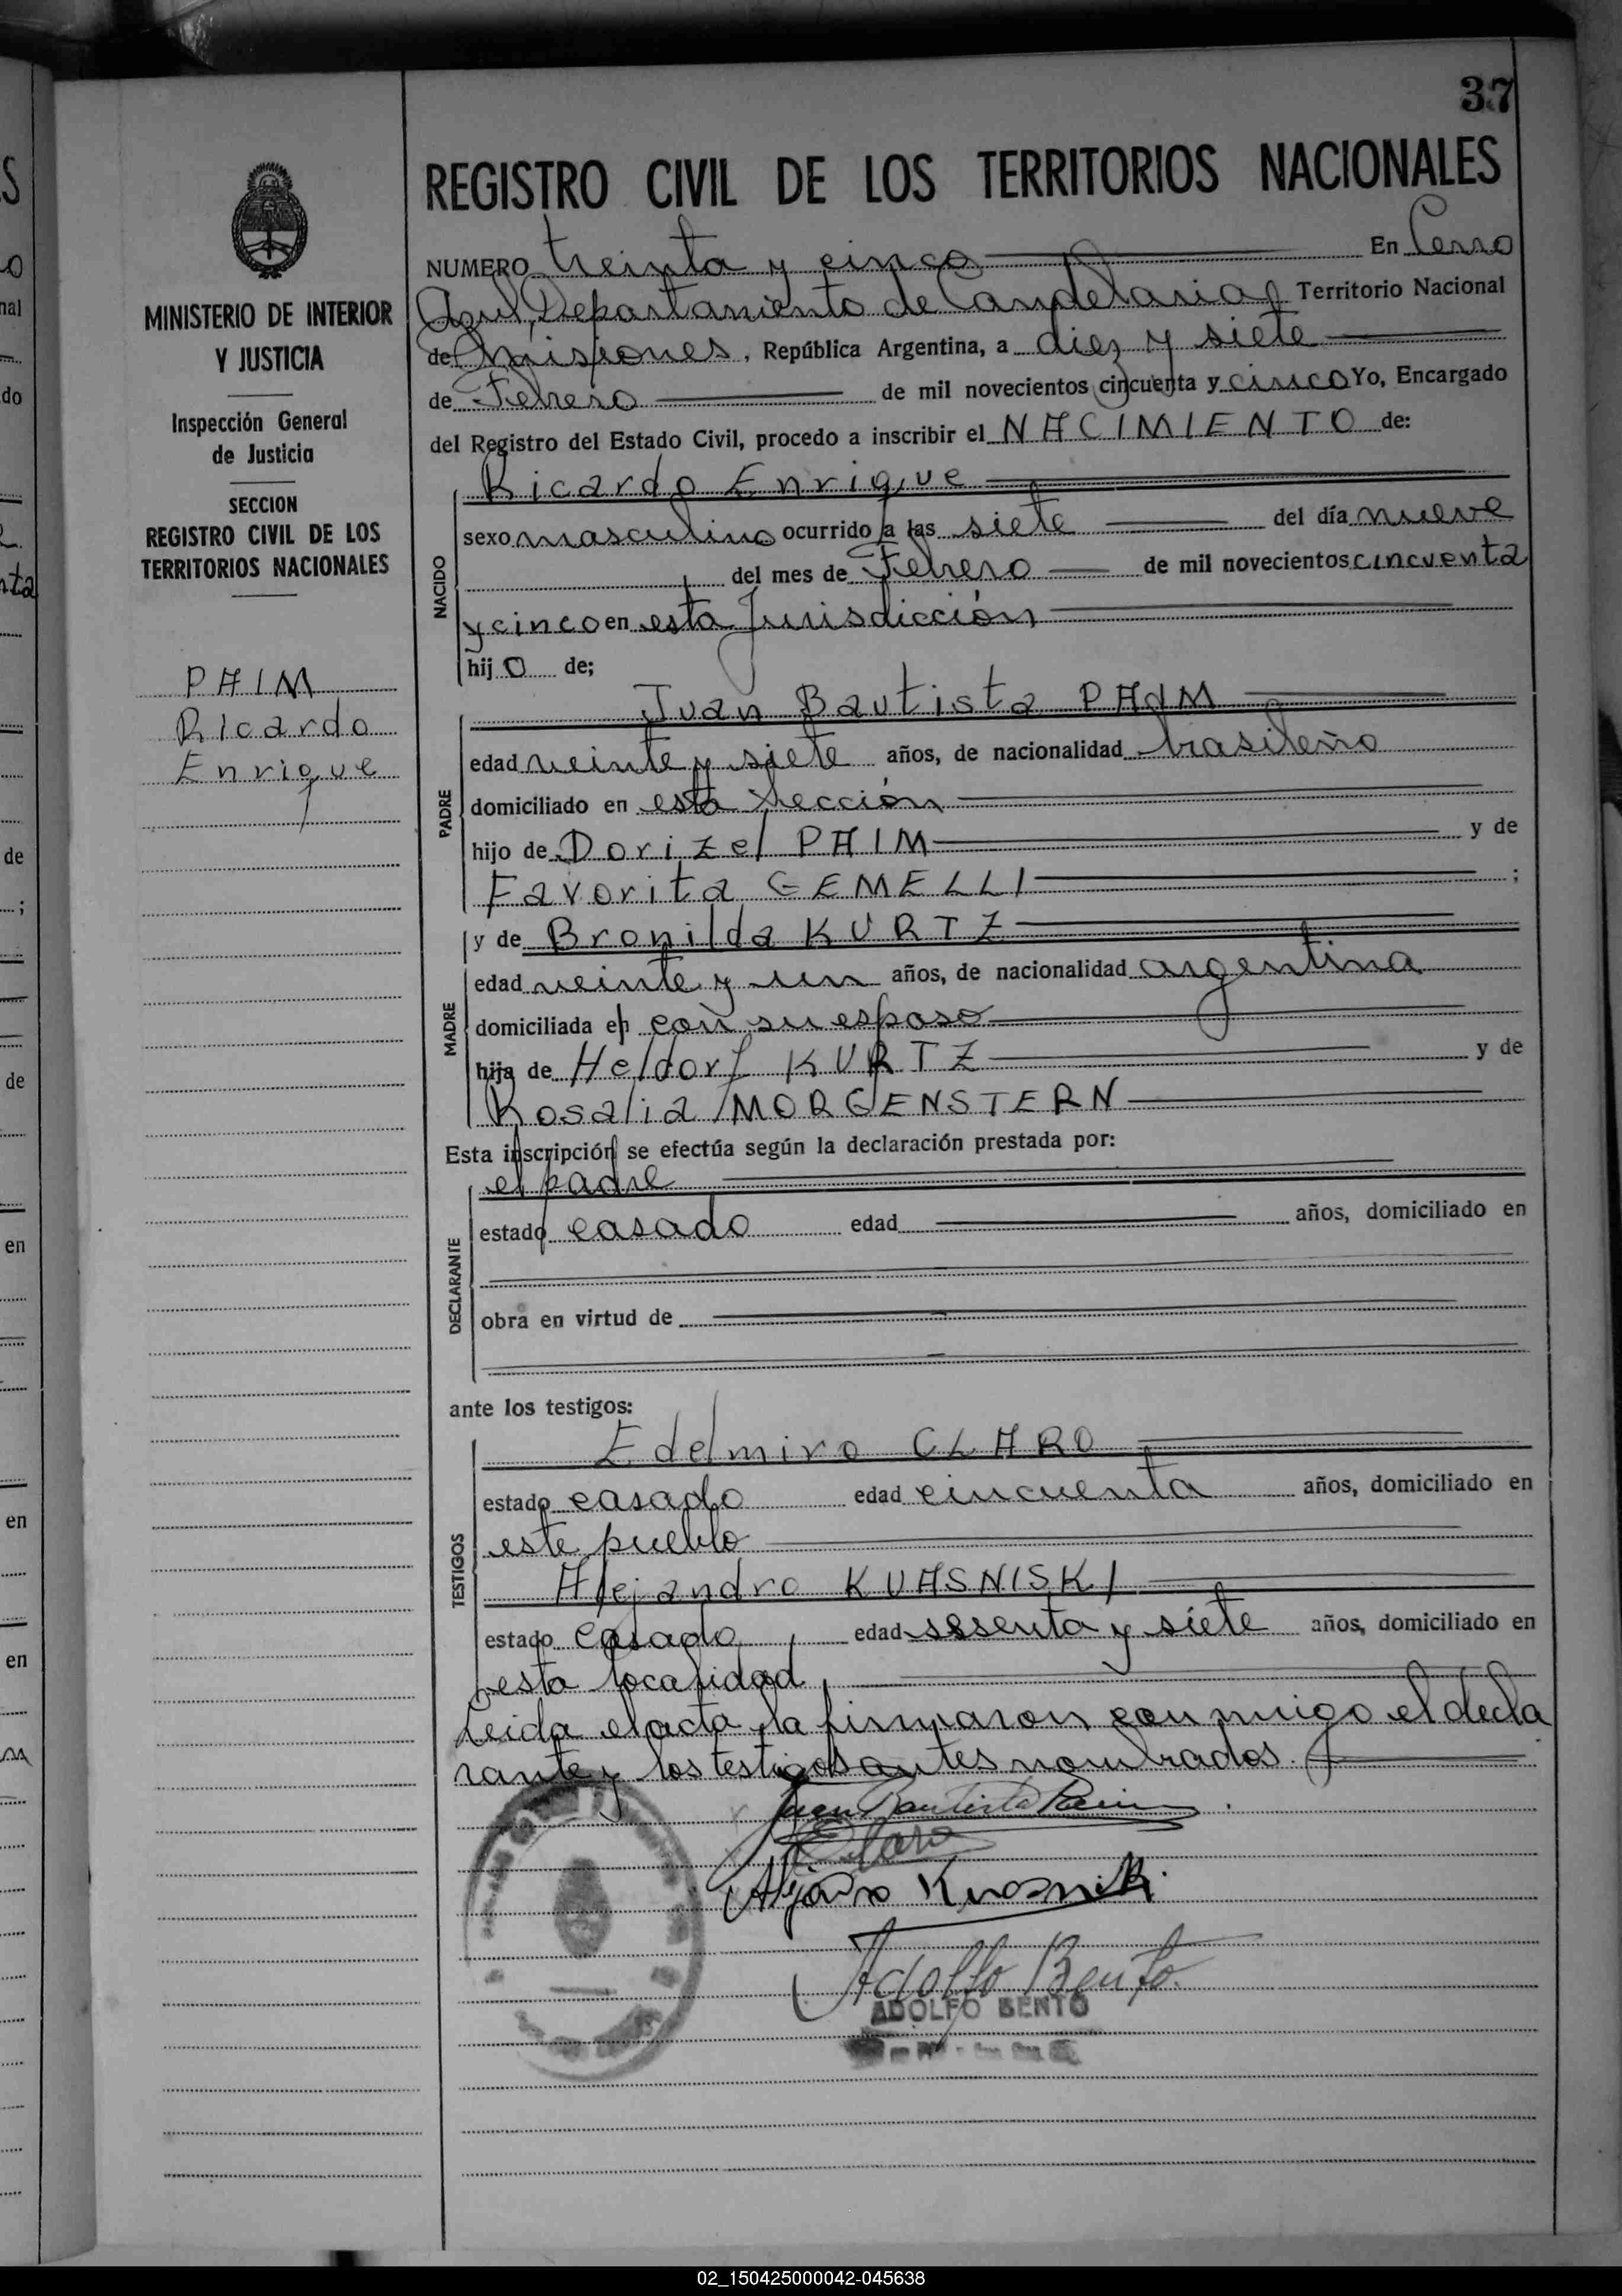 37
REGISTRO CIVIL DE LOS TERRITORIOS NACIONALES
MINISTERIO DE INTERIOR
Y JUSTICIA
Inspección General
de Justicia
SECCION
REGISTRO CIVIL DE LOS
TERRITORIOS NACIONALES
PAIM
Ricardo
Enrique
NUMERO treinta y cinco En Cerro
Azul, Departamiento de Candelaria Territorio Nacional
de Misiones, República Argentina, a diez y siete
de Febrero de mil novecientos cincuenta y cinco Yo, Encargado
del Registro del Estado Civil, procedo a inscribir el NACIMIENTO de:
Ricardo Enrique
NACIDO
sexo masculino ocurrido a las siete del día nueve
del mes de Febrero de mil novecientos cincuenta
y cinco en esta Jurisdicción
hijo de;
Juan Bautista PAIM
PADRE
edad veinte y siete años, de nacionalidad brasileño
domiciliado en esta Sección
hijo de Dorizel PAIM y de
Favorita GEMELLI ;
y de Bronilda KURTZ
MADRE
edad veinte y un años, de nacionalidad argentina
domiciliada en con su esposo
hija de Heldorf KURTZ y de
Rosalia MORGENSTERN
Esta inscripción se efectúa según la declaración prestada por:
el padre
DECLARANTE
estado casado edad años, domiciliado en
obra en virtud de
ante los testigos:
Edelmiro CLARO
TESTIGOS
estado casado edad cincuenta años, domiciliado en
este pueblo
Alejandro KUASNISKI
estado casado edad sesenta y siete años, domiciliado en
esta localidad
Leida el acta, la firmaron con migo el decla
rante y los testigos antes nombrados.
Juan Bautista Paim
EClaro
Adolfo Bento
ADOLFO BENTO
02_150425000042-045638